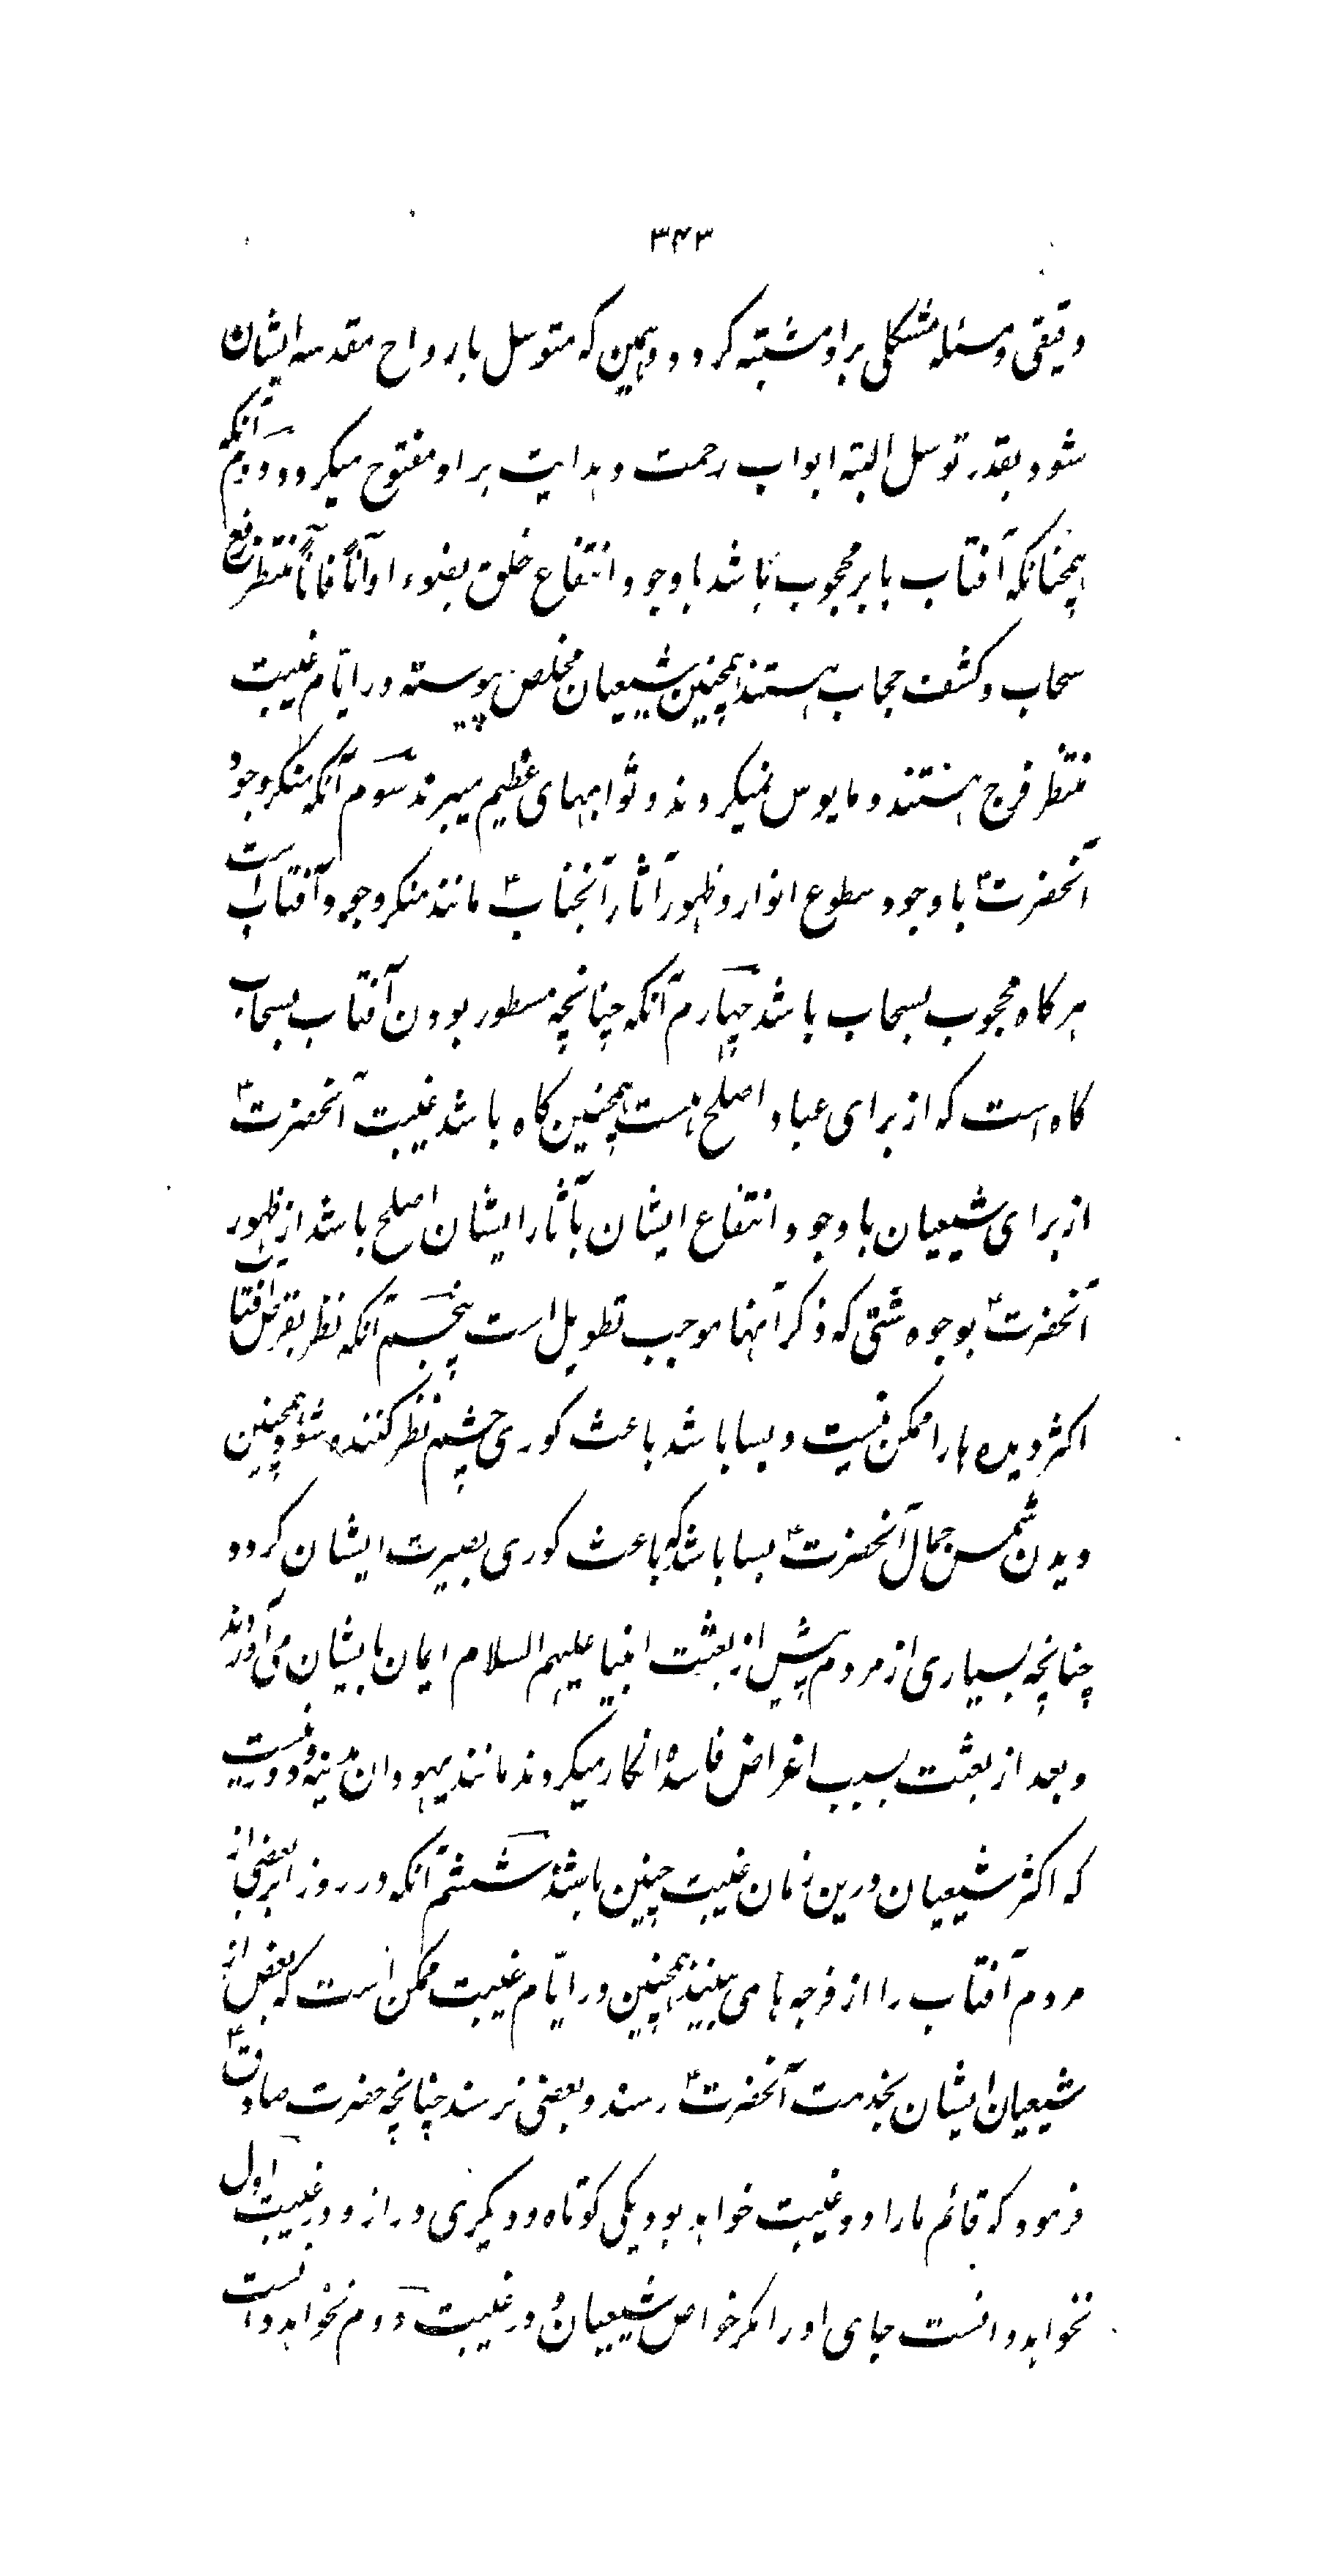 ۳۴۳
دقیقی و مسئله مشکلی بر او مشتبه کردد و همین که متوسل بارواح مقدسه ایشان
شود بقدر توسل البته ابواب رحمت و هدایت بر او مفتوح میکردد دوم آنکه
همچنانکه آفتاب بابر محجوب باشد با وجود انتفاع خلق بضوء او آناً فآناً منتظر رفع
سحاب و کشف حجاب هستند همچنین شیعیان مخلص پیوسته در ایّام غیبت
منتظر فرج هستند و مایوس نمیکردند و ثوابهای عظیم میبرند سوم آنکه منکر وجود
آنحضرت۴ با وجود سطوع انوار و ظهور آثار آنجناب۴ مانند منکر وجود آفتاب است
هر کاه محجوب بسحاب باشد چهارم آنکه چنانچه مسطور بودن آفتاب بسحاب
کاه است که از برای عباد اصلح است همچنین کاه باشد غیبت آنحضرت۴
از برای شیعیان با وجود انتفاع ایشان بآثار ایشان اصلح باشد از ظهور
آنحضرت۴ بوجوه شتی که ذکر آنها موجب تطویل است پنجم آنکه نظر بقرص آفتاب
اکثر دیده ها را ممکن نیست و بسا باشد باعث کوری چشم نظر کننده شود و همچنین
دیدن شمس جمال آنحضرت۴ بسا باشد که باعث کوری بصیرت ایشان کردد
چنانچه بسیاری از مردم پیش از بعثت انبیا علیهم السلام ایمان بایشان می آوردند
و بعد از بعثت بسبب اغراض فاسده انکار میکردند مانند یهودان مدینه و دور نیست
که اکثر شیعیان درین زمان غیبت چنین باشند ششم آنکه در روز ابر بعضی از
مردم آفتاب را از فرجه ها می بینند همچنین در ایّام غیبت ممکن است که بعضی از
شیعیان ایشان بخدمت آنحضرت۴ رسند و بعضی نرسند چنانچه حضرت صادق۴
فرمود که قائم ما را دو غیبت خواهد بود یکی کوتاه و دیکری دراز و در غیبت اول
نخواهد دانست جای او را مکر خواص شیعیان و در غیبت دوم نخواهد دانست